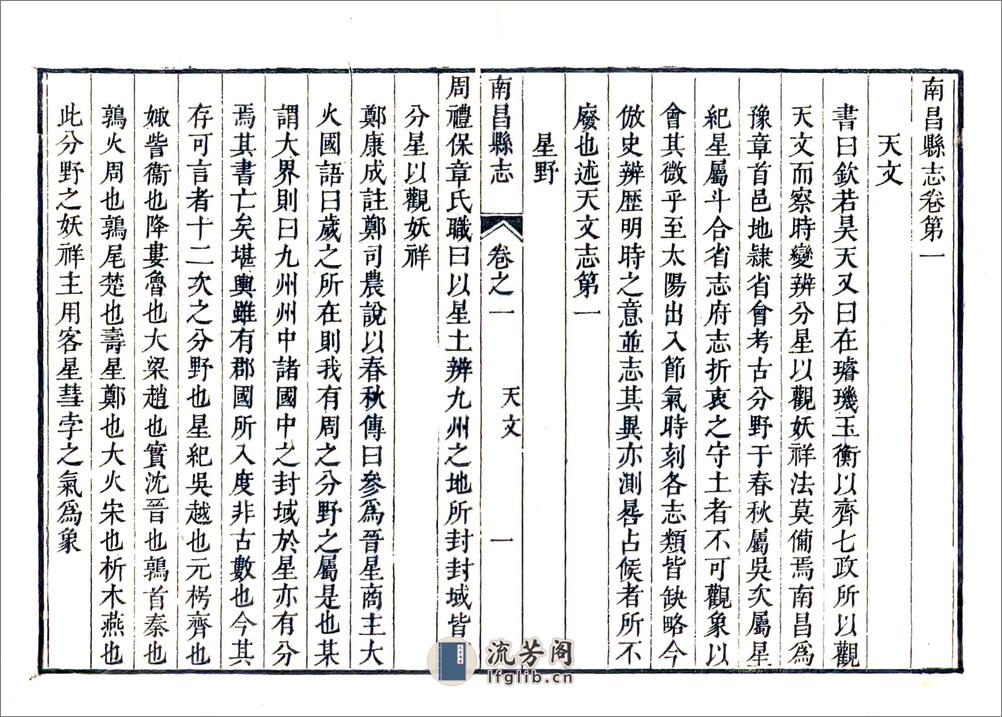 南昌縣志卷第一
天文
書曰欽若昊天又曰在璿璣玉衡以齊七政所以觀
天文而察時變辨分星以觀妖祥法莫備焉南昌為
豫章首邑地隷省會考古分野于春秋屬吳次屬星
紀星屬斗合省志府志折衷之守土者不可觀象以
會其微乎至太陽出入節氣時刻各志類皆缺略今
倣史辨歷明時之意並志其異亦測晷占候者所不
廢也述天文志第一
星野
南昌縣志
卷之一
天文
一
周禮保章氏職曰以星土辨九州之地所封封域皆
分星以觀妖祥
鄭康成註鄭司農說以春秋傳曰參為晉星商主大
火國語曰歲之所在則我有周之分野之屬是也某
謂大界則曰九州州中諸國中之封域於星亦有分
焉其書亡矣堪輿雖有郡國所入度非古數也今其
存可言者十二次之分野也星紀吳越也元枵齊也
娵訾衞也降婁魯也大梁趙也實沈晉也鶉首秦也
鶉火周也鶉尾楚也壽星鄭也大火宋也析木燕也
此分野之妖祥主用客星彗孛之氣為象
流芳阁
lfglib.cn